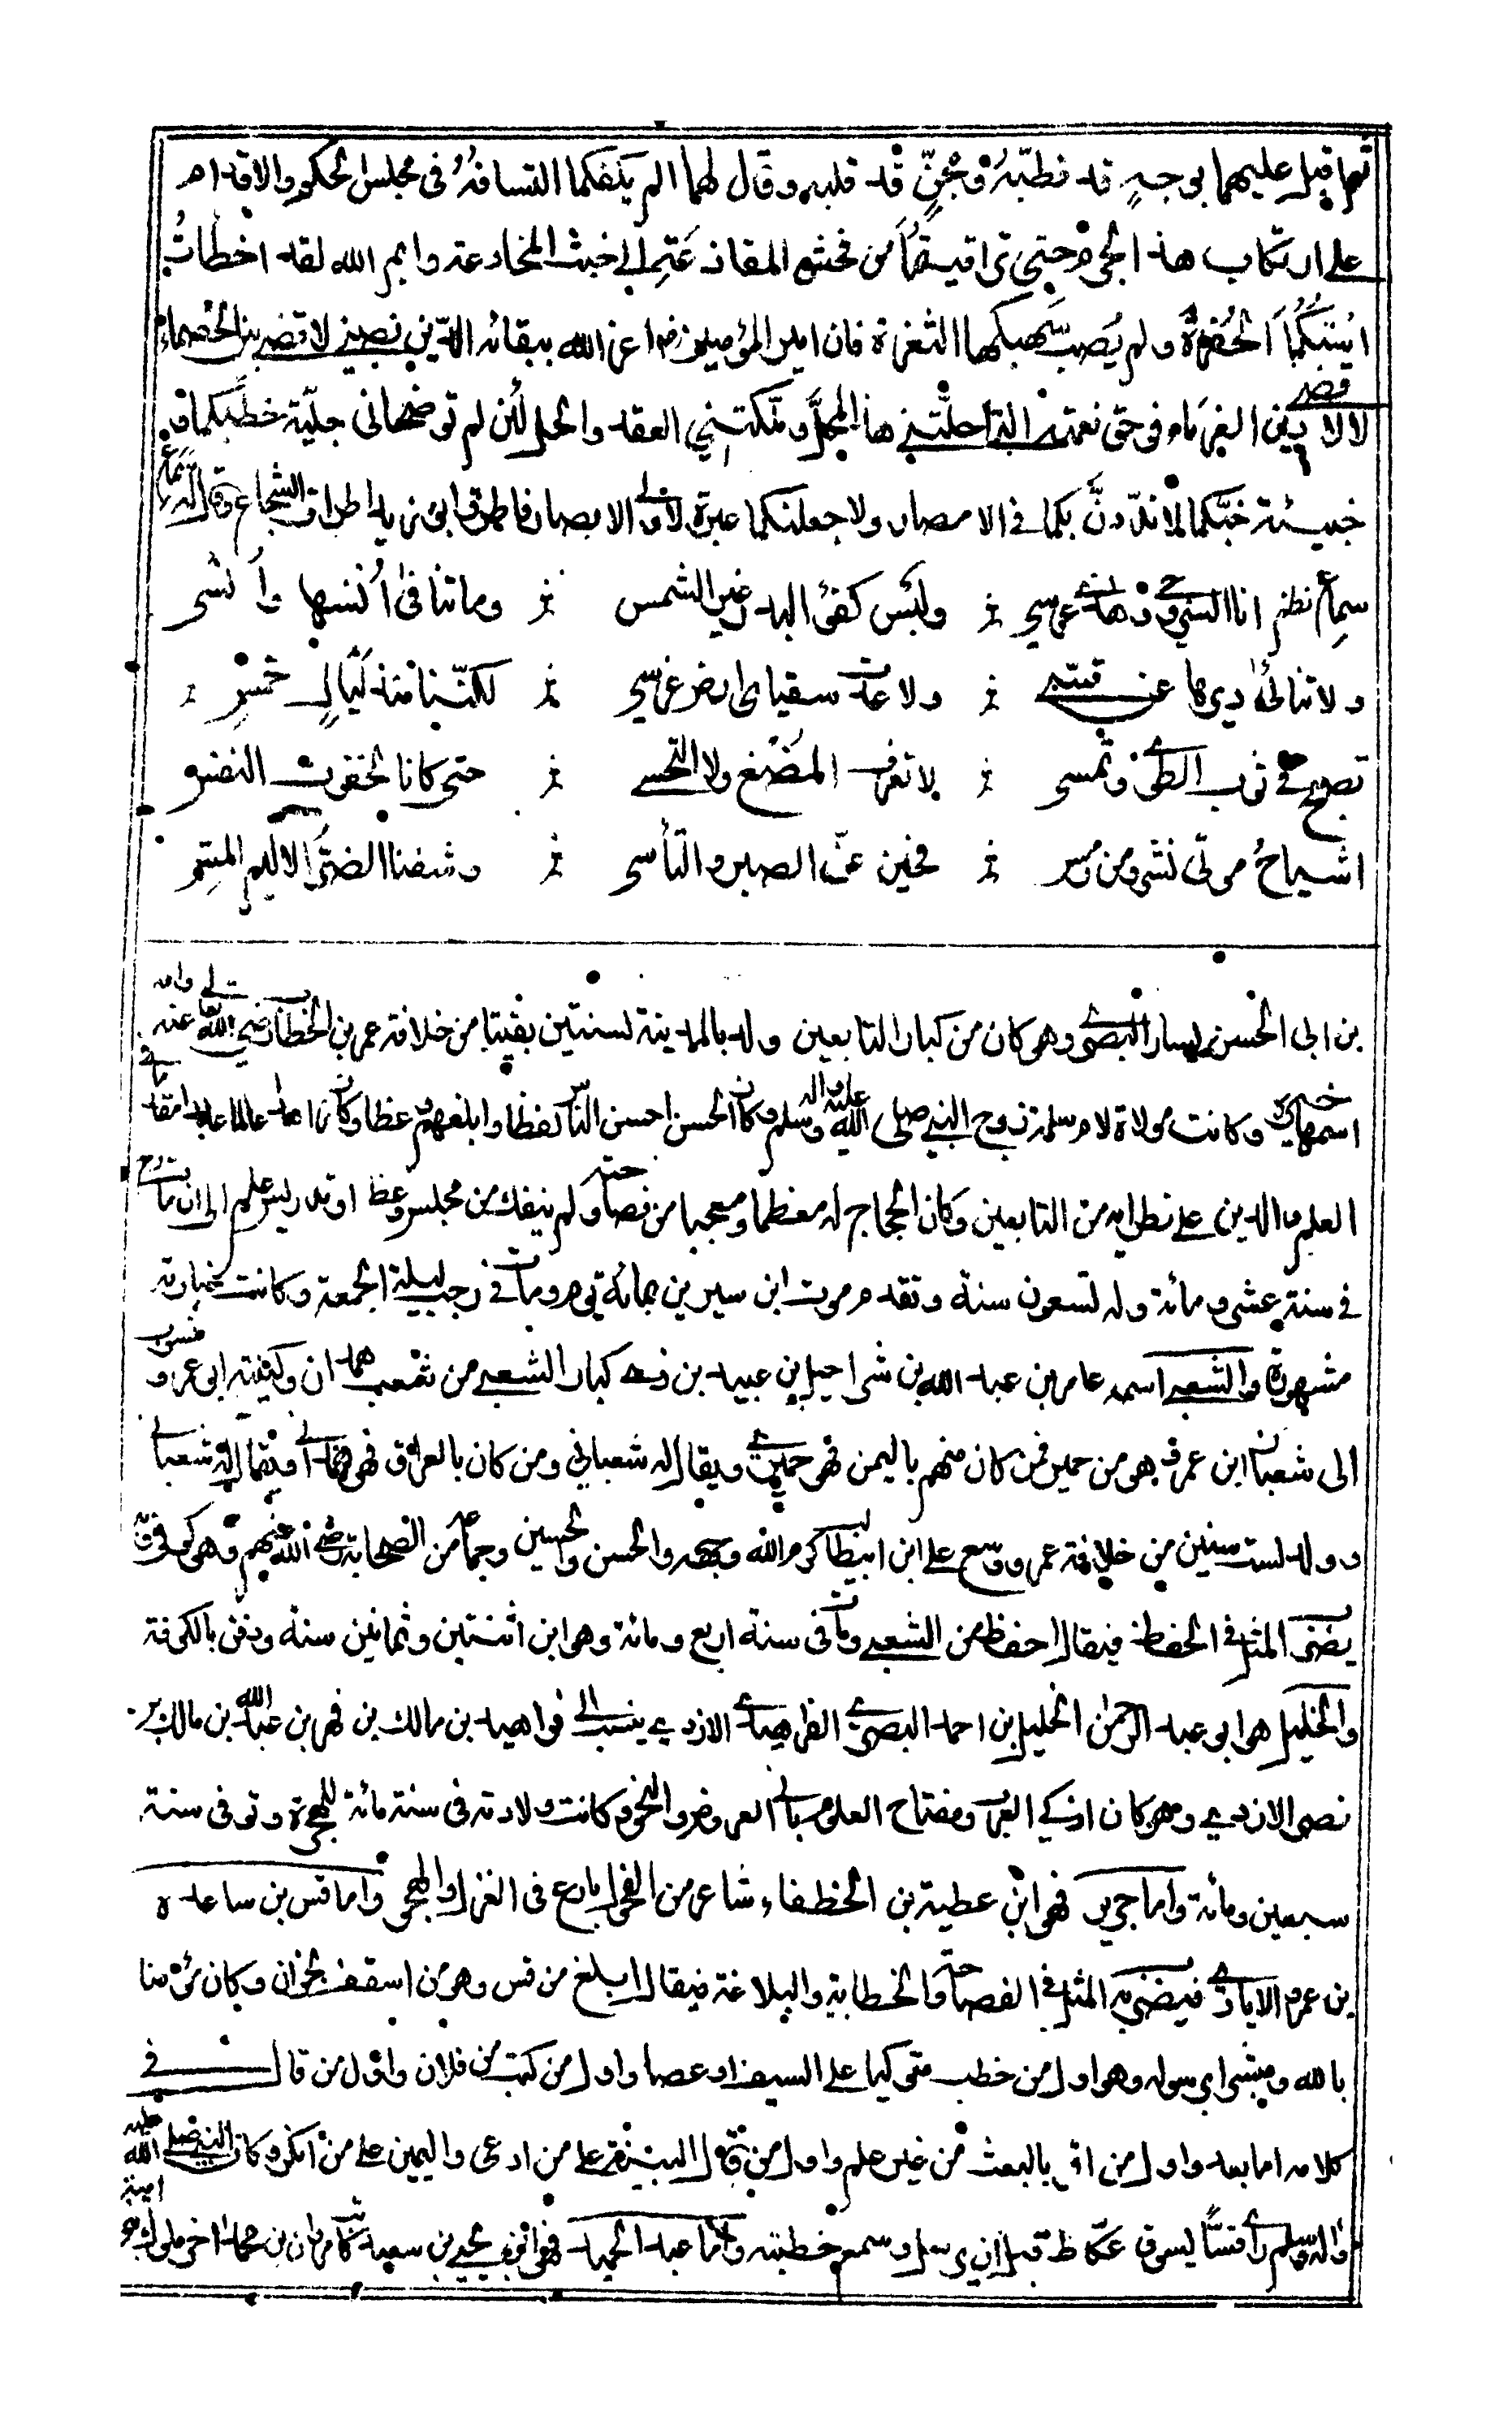 ثم اقبل عليهما بوجه قد قطبه ومجن قد قلبه وقال لهما الم يكفكما التسافه فى مجلس الحكم والاقدام
على ارتكاب هذا الجرم حتى تراقيتما من فحش المقاذعة الى خبث المخادعة وايم الله لقد اخطأت
استكما الحفرة ولم يصب سهمكما الثغرة فان امير المؤمنين اعز الله ببقائه الدين نصبنى لاقضى بين الخصماء
لا لاقضى دين الغرماء وحق نعمته التى احلتنى هذا المحل وملكتنى العقد والحل لئن لم توضحا لى جلية خطبكما و
خبيئة خبكما لاندّدنّ بكما فى الامصار ولاجعلنكما عبرة لاولى الابصار فاطرق ابو زيد اطراق الشجاع وقال له سماع
سماع نظم انا السروجي وهذى عرسي ولیس كفؤ البدر غير الشمس وما تنافى اُنسها واُنسى
ولا تناءى ديرها عن قسى ولا عدت سقياى ارض غرسي لكننا منذ لَيَالٍ خمسٍ
تصبح فى ثوب الطوى وتمسى لا نعرف المضغ ولا التحسى حتى كانا لخفوت النفس
اشباحُ موتى نشروا من رمس فحين عزّ الصبر والتأسى وشفنا الضر الاليم المس
بن ابى الحسن يسار البصرى وهو كان من كبار التابعين ولد بالمدينة لسنتين بقيتا من خلافة عمر بن الخطاب رضي الله تعالى عنه وامه
اسمها خيرة وكانت مولاة لام سلمة زوج النبى صلى الله عليه واله وسلم وكان الحسن احسن الناس لفظا وابلغهم وعظا وكان زاهدا عالما عابدا مقدما فى
العلم والدين على نظرايه من التابعين وكان الحجاج له معظما ومعجبا من فصاحته ولم ينفك من مجلس وعظ او تدريس علم الى ان مات بتدرج
فى سنة عشر ومائة وله تسعون سنة وتقدم موت ابن سيرين بمائة يوم ومات فى رجب ليلة الجمعة وكانت جنازته
مشهورة والشعبى اسمه عامر بن عبد الله بن شراحيل بن عبيد بن ذى كبار الشعبى من شعب همدان وكنيته ابو عمرو منسوب
الى شعبان ابن عمرو وهو من حمير فمن كان منهم باليمن فهو حميرى ويقال له شعبانى ومن كان بالعراق فهو همدانى ويقال له شعبانى
وولد لست سنين من خلافة عمر وسمع على ابن ابيطالب كرم الله وجهه والحسن والحسين وجماعة من الصحابة رضي الله عنهم وهو كوفى
يضرب المثل فى الحفظ فيقال احفظ من الشعبى ومات فى سنة اربع ومائة وهو ابن اثنتين وثمانين سنة ودفن بالكوفة
والخليل هو ابو عبد الرحمٰن الخليل بن احمد البصرى الفراهيدى الازدى ينسب الى فراهيد بن مالك بن فهر بن عبد الله بن مالك بن
نصر الازدى وهو كان اذكى العرب ومفتاح العلوم بانى العروض والنحو وكانت ولادته فى سنة مائة للهجرة وتوفى سنة
سبعين ومائة واما جرير فهو ابن عطية بن الخطفاء شاعر من الفحول بارع فى الغزل والهجو واما قس بن ساعدة
بن عمرو الايادى فيضرب به المثل فى الفصاحة والخطابة والبلاغة فيقال ابلغ من قس وهو من اسقف نجران وكان مؤمنا
بالله ومبشرا برسوله وهو اول من خطب متوكيا على السيف او عصا واول من كتب من فلان واول من قال فى
كلامه اما بعد واول من اقر بالبعث من غير علم واول من قال البينة على من ادعى واليمين على من انكر وكان النبى صلى الله عليه
واله وسلم رأى قسًّا بسوق عكاظ قبل ان يرسل وسمع خطبته واما عبد الحميد فهو ابن يحيى بن سعيد كاتب مروان بن محمد اخر ملوك بنى امية